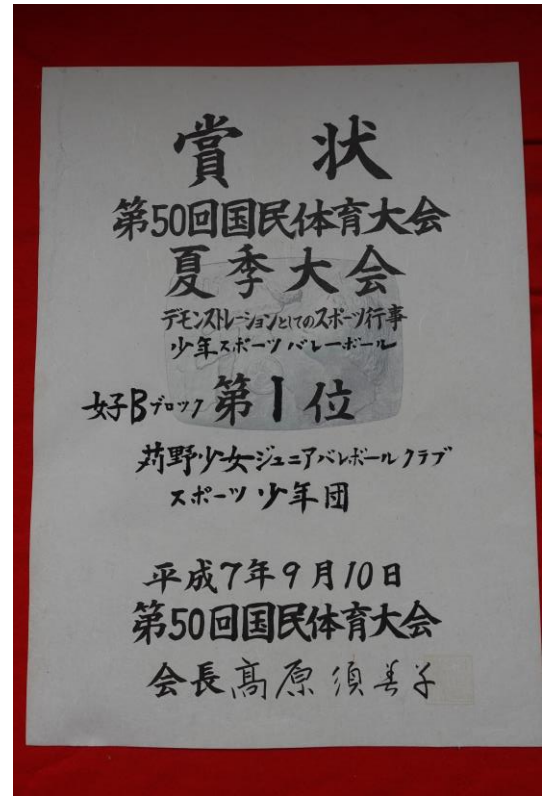 賞状
第50回国民体育大会
夏季大会
デモンストレーションとしてのスポーツ行事
少年スポーツバレーボール
女子Bブロック 第1位
苅野少女ジュニアバレーボールクラブ
スポーツ少年団
平成7年9月10日
第50回国民体育大会
会長 髙原須美子